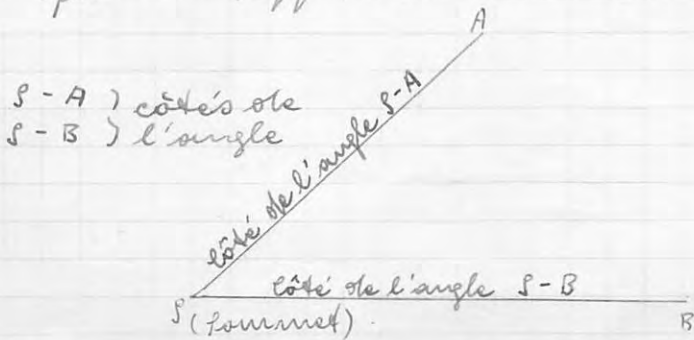 A
S - A ) côtés de
S - B ) l'angle
côté de l'angle S-A
côté de l'angle S-B
S (Sommet).
B